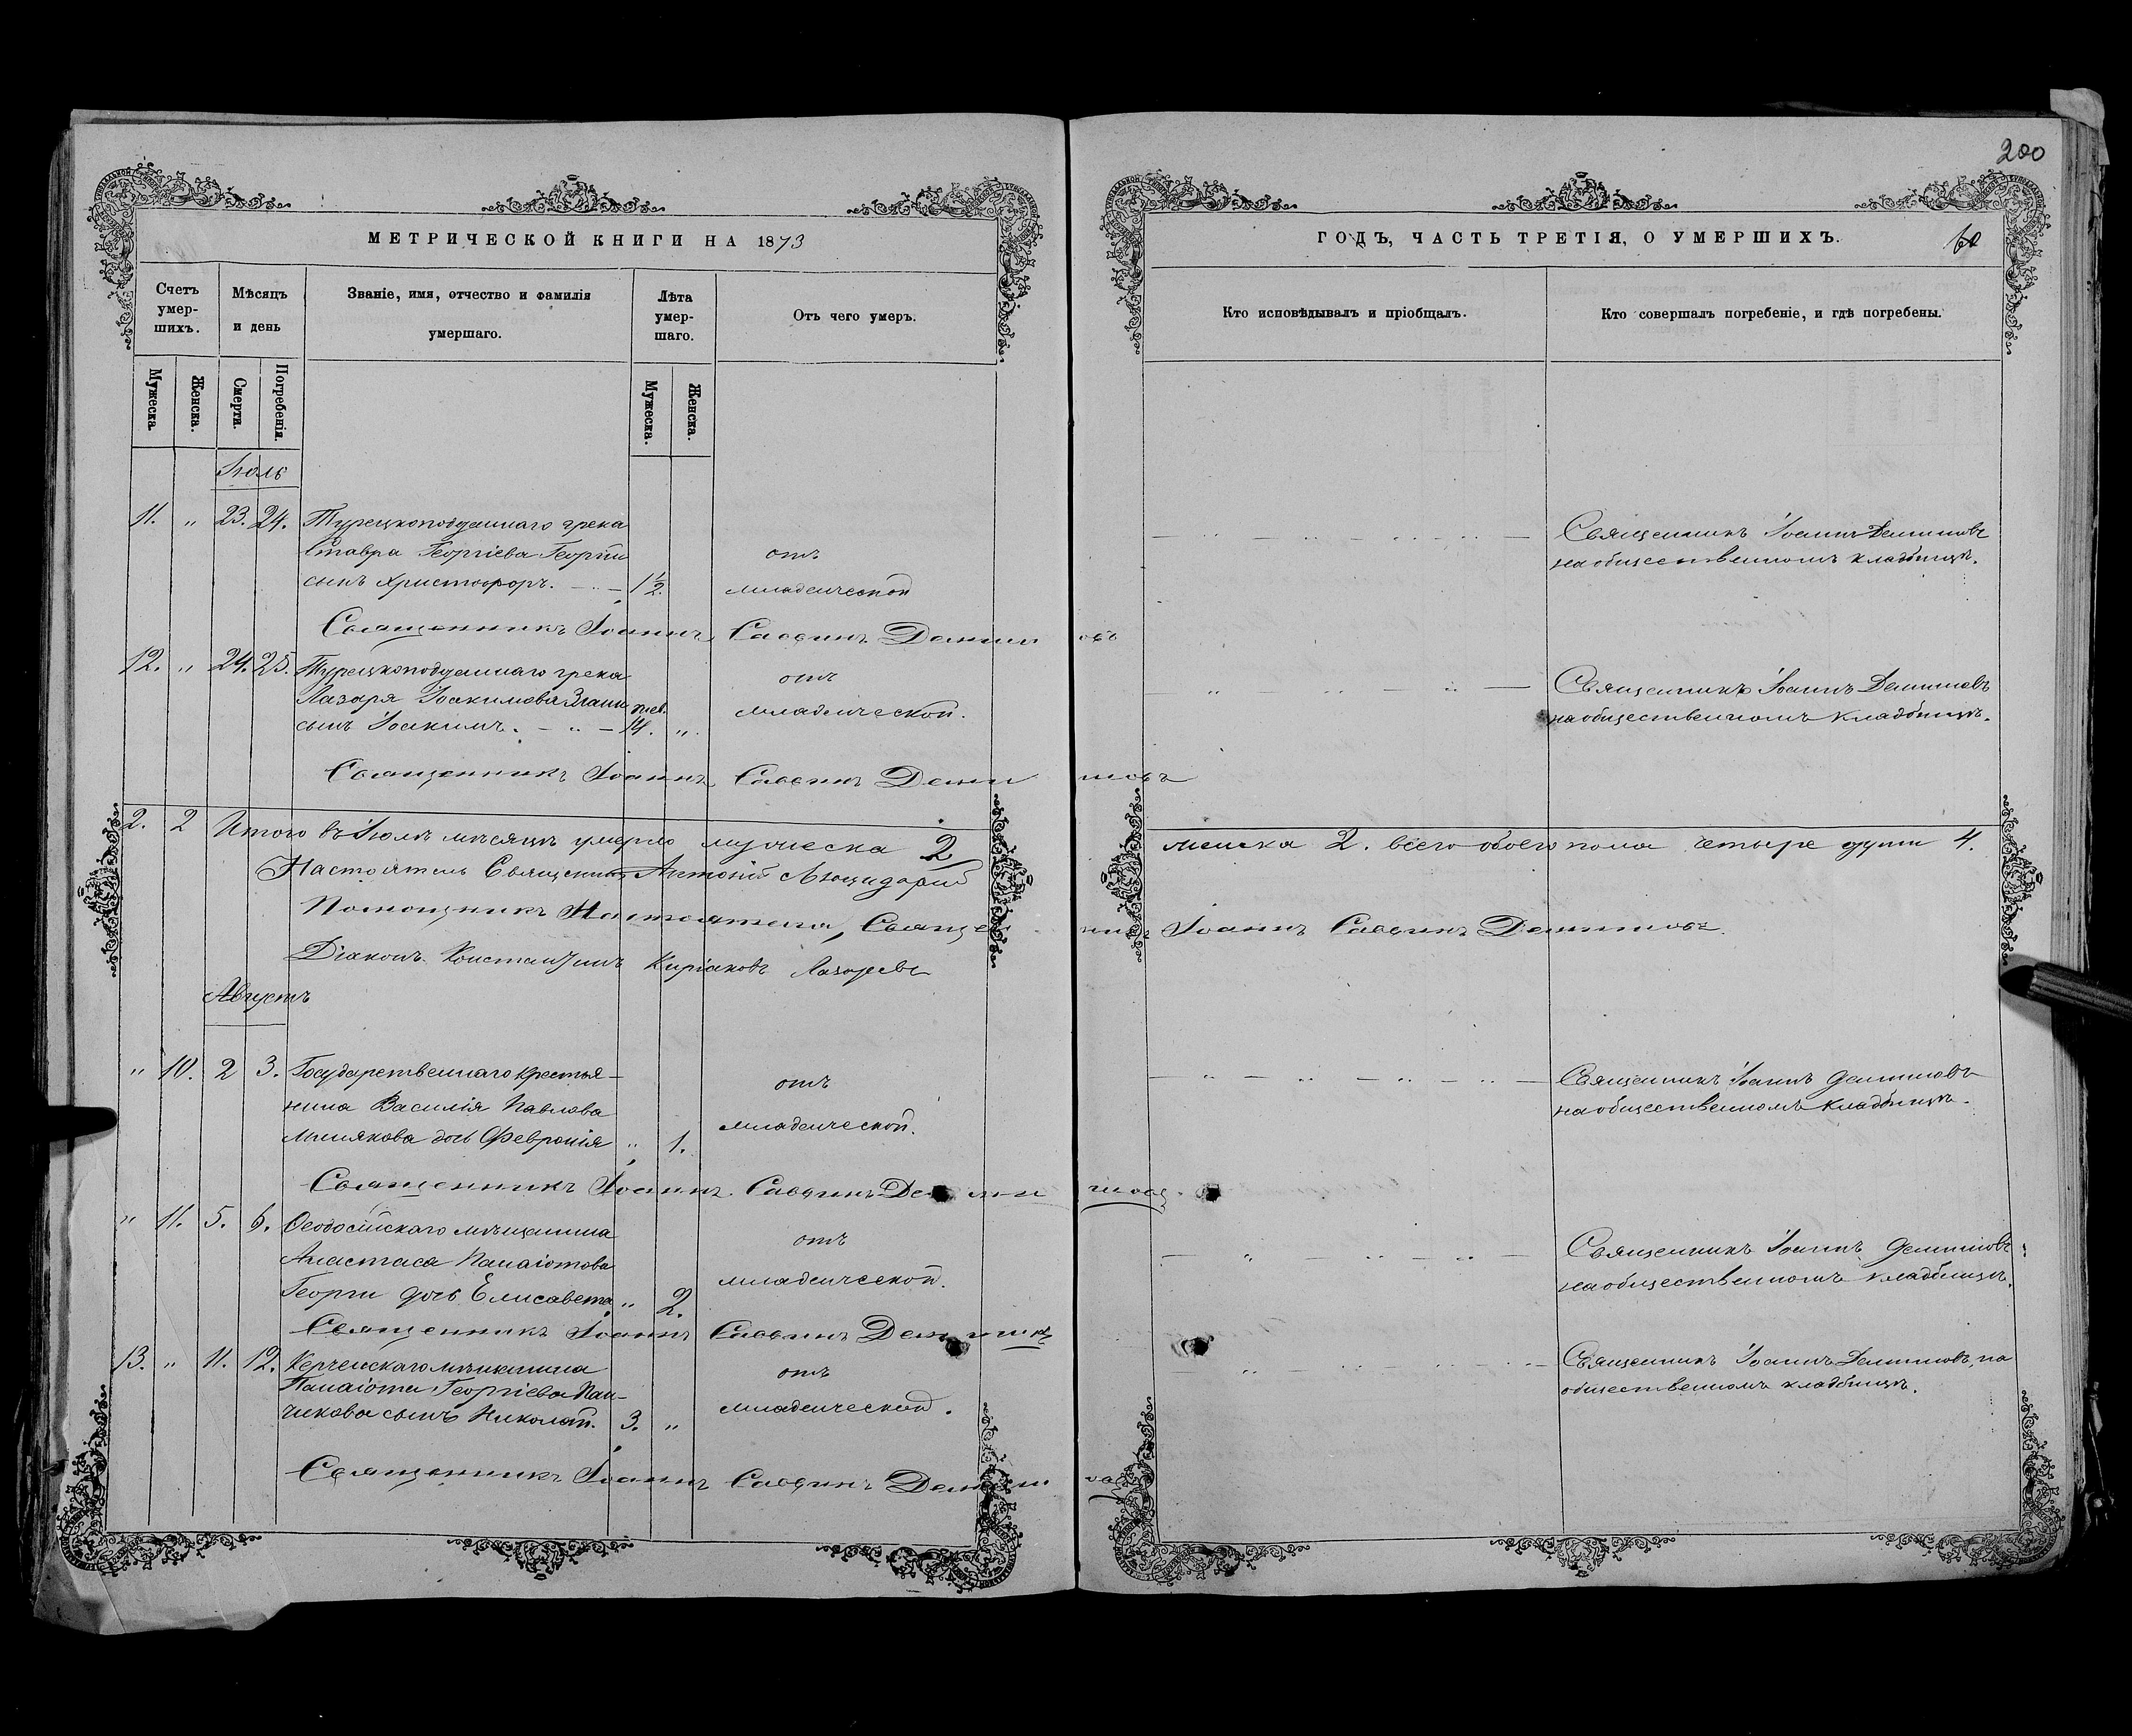 200
МЕТРИЧЕСКОЙ КНИГИ НА 1873
ГОДЪ, ЧАСТЬ ТРЕТІЯ, О УМЕРШИХЪ.
60
Счетъ умер-шихъ.
Мѣсяцъ и день
Званіе, имя, отчество и фамилія умершаго.
Лѣта умер-шаго.
Отъ чего умеръ.
Кто исповѣдывалъ и пріобщалъ.
Кто совершалъ погребеніе, и гдѣ погребены.
Мужеска.
Женска.
Смерти.
Погребенія.
Мужеска.
Женска.
Іюль
11. " 23. 24. Турецкоподданнаго грека
Ставра Георгіева Георги отъ
сынъ Христофоръ. 1½. младенческой
Священникъ Іоаннъ Деминовъ
на общественномъ кладбищѣ.
Священникъ Іоаннъ Саввинъ Деминовъ
12. " 24. 25. Турецкоподданнаго грека отъ
Лазаря Іоакимова мес.
сынъ Іоакимъ. 14. " младенческой.
Священникъ Іоаннъ Деминовъ
на общественномъ кладбищѣ.
Священникъ Іоаннъ Саввинъ Деминовъ
2. 2 Итого въ Іюлѣ мѣсяцѣ умерло мужеска 2 женска 2. всего обоего пола четыре души 4.
Настоятель Священникъ Антоній
Помощникъ Настоятеля, Священникъ Іоаннъ Саввинъ Деминовъ
Діаконъ Константинъ Киріаковъ Лазаревъ
Августъ
" 10. 2 3. Государственнаго крестья-
нина Василія Павлова отъ
Минякова дочь Февронія " 1. младенческой.
Священникъ Іоаннъ Деминовъ
на общественномъ кладбищѣ.
Священникъ Іоаннъ Саввинъ Деминовъ
" 11. 5. 6. Ѳеодосійскаго мѣщанина
Анастаса Панаіотова отъ
Георги дочь Елисавета " 2. младенческой.
Священникъ Іоаннъ Деминовъ
на общественномъ кладбищѣ.
Священникъ Іоаннъ Саввинъ Деминовъ
13. " 11. 12. Керченскаго мѣщанина
Панаіота Георгіева Пан- отъ
чикова сынъ Николай. 3. " младенческой.
Священникъ Іоаннъ Деминовъ, на
общественномъ кладбищѣ.
Священникъ Іоаннъ Саввинъ Деминовъ